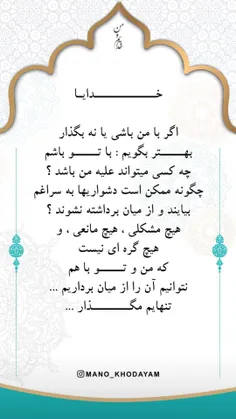 من و خدا
خـــــدایـــا
اگر با من باشی یا نه بگذار
بهـــتر بگویم : با تـــو باشم
چه کسی میتواند علیه من باشد ؟
چگونه ممکن است دشواریها به سراغم
بیایند و از میان برداشته نشوند ؟
هیچ مشکلی ، هیچ مانعی ، و
هیچ گره ای نیست
که من و تـــو با هم
نتوانیم آن را از میان برداریم ...
تنهایم مگـــذار ...
MANO_KHODAYAM